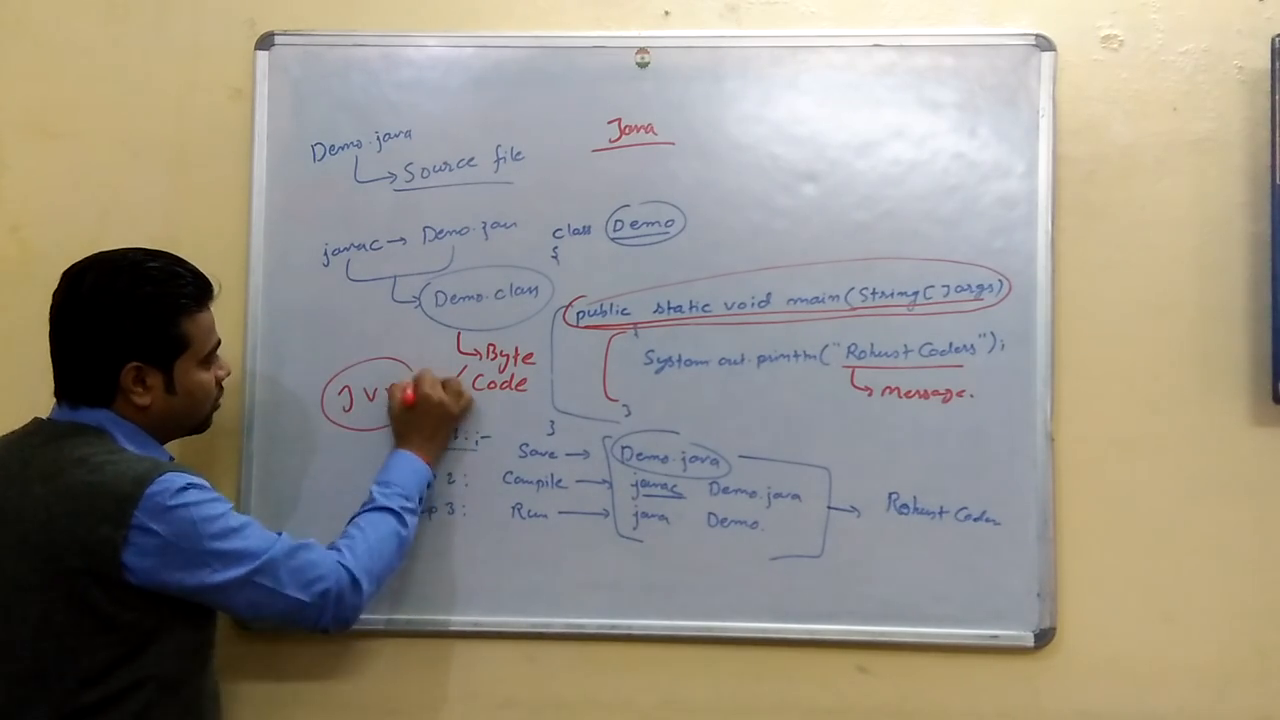 Java
Demo.java
Source file
javac → Demo.java
Demo.class
Byte
Code
JV
class Demo
{
public static void main(String[] args)
{
System.out.println("Robust Coders");
message.
}
}
1:-
Save → Demo.java
2: Compile → javac Demo.java
p 3: Run → java Demo.
Robust Coder